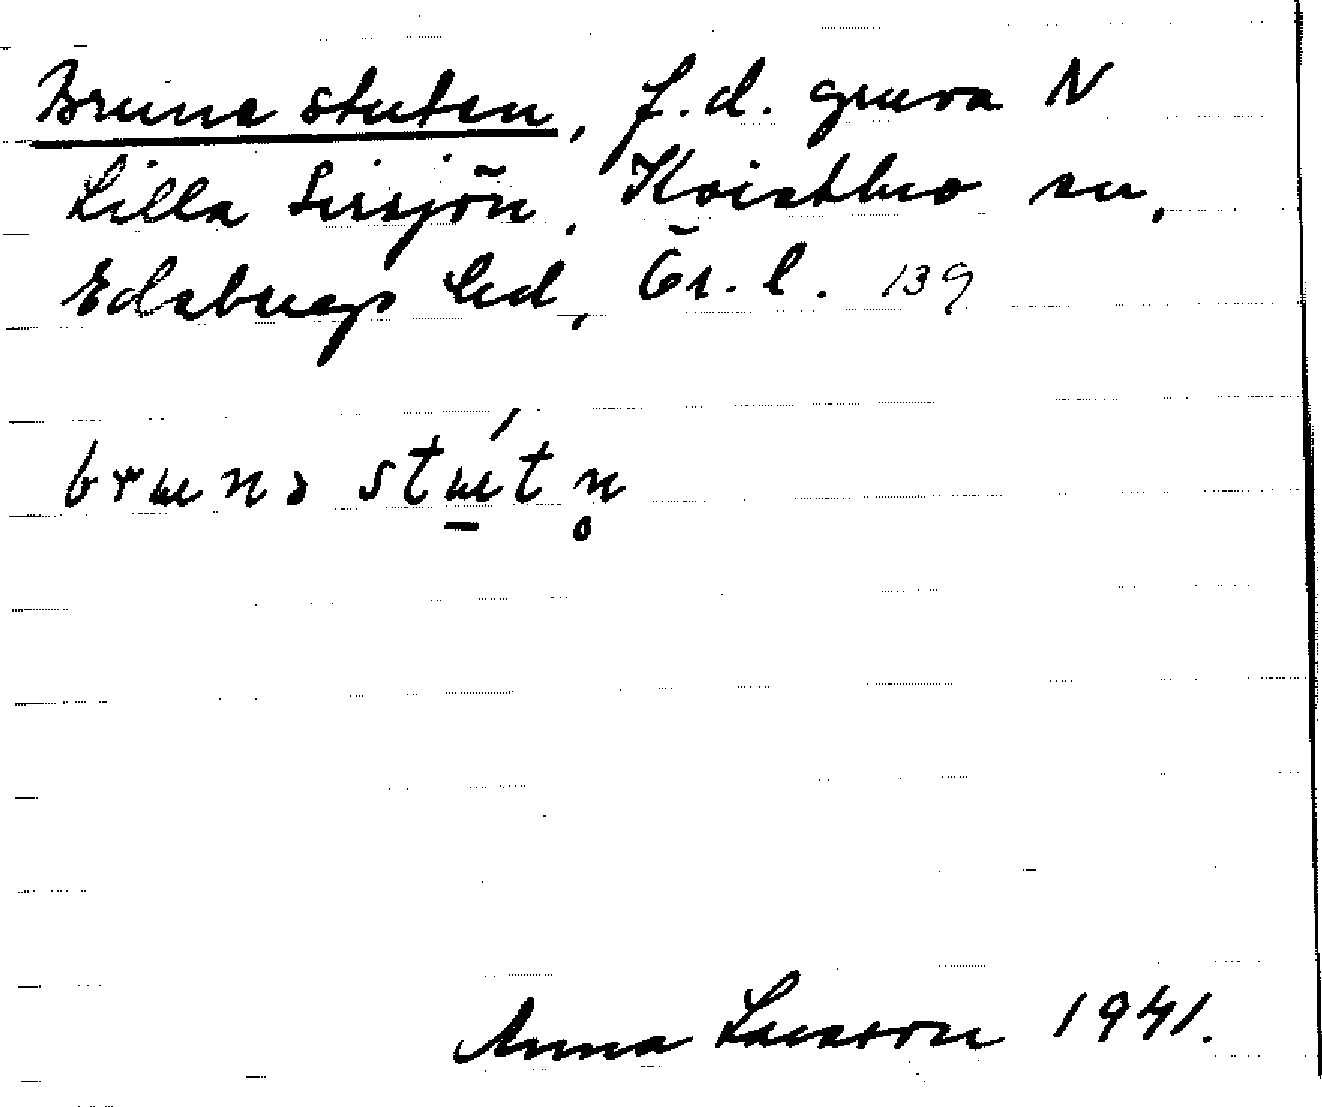 Bruna stuten, f.d. gruva N
Lilla Sirsjön, Kvistbro sn,
Edsbergs hd, Ör. l. 139
brunə stú̱tn̥
Anna Larsson 1941.